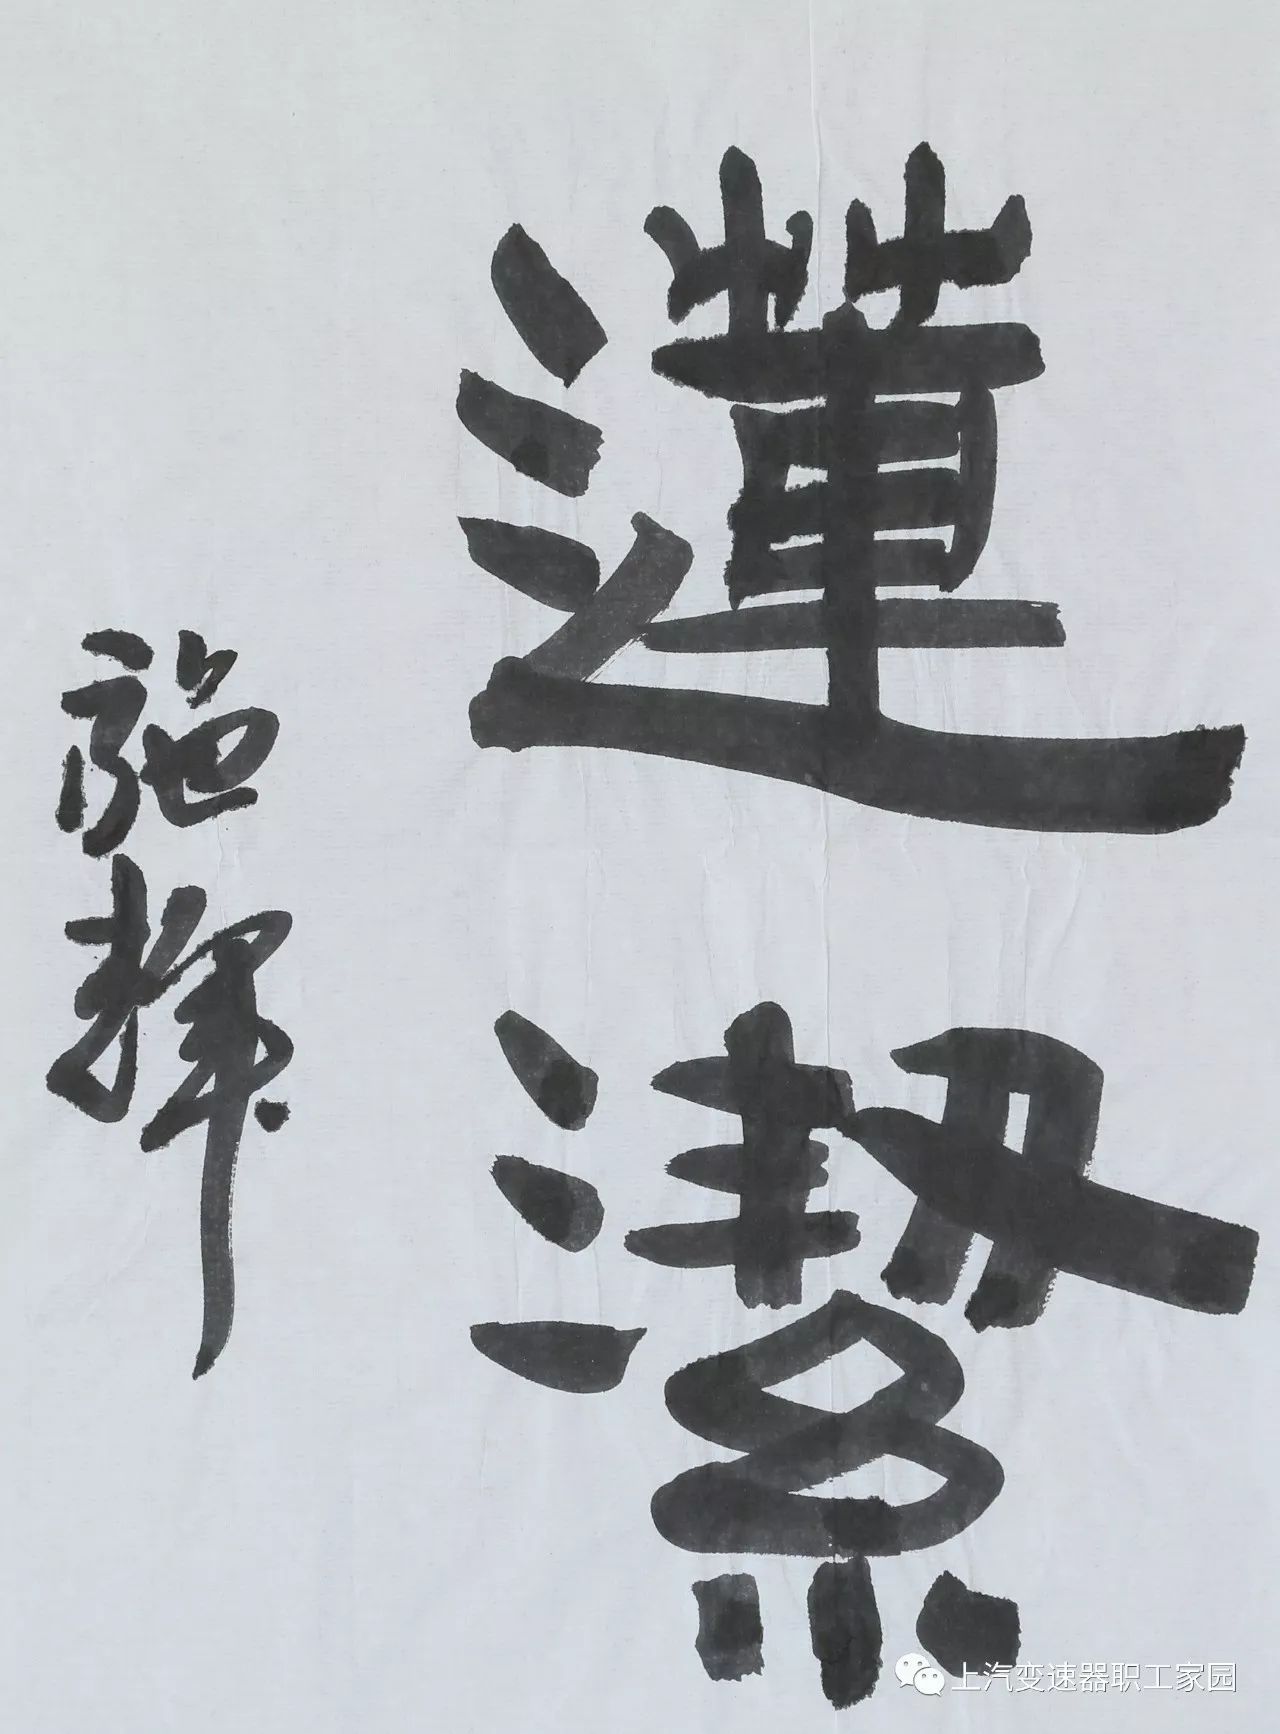 蓮潔
施輝
上汽变速器职工家园